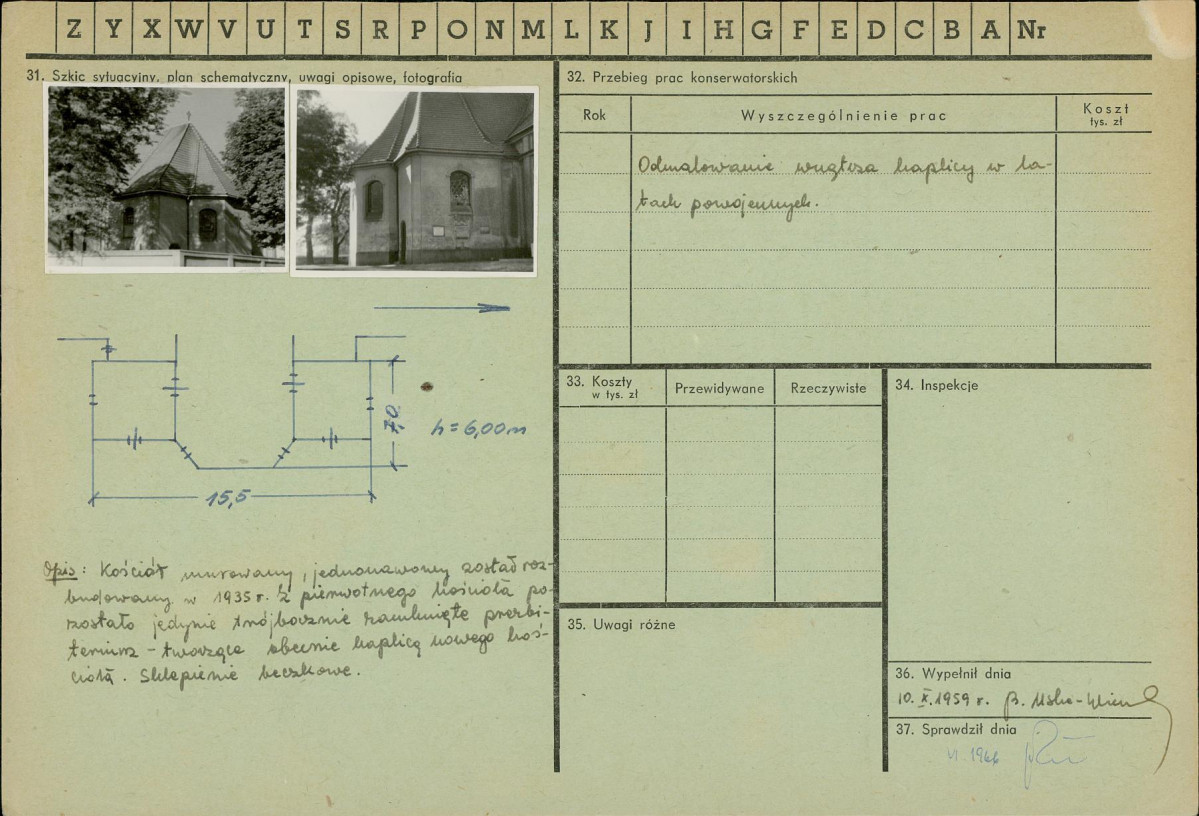 Z Y X W V U T S R P O N M L K J I H G F E D C B A Nr
31. Szkic sytuacyjny, plan schematyczny, uwagi opisowe, fotografia
7,0
h = 6,00 m
15,5
Opis: Kościół murowany, jednonawowy został roz-
budowany w 1935 r. z pierwotnego kościoła po-
zostało jedynie trójbocznie zamknięte prezbi-
terium - tworząca obecnie kaplicę nowego koś-
cioła. Sklepienie beczkowe.
32. Przebieg prac konserwatorskich
Rok Wyszczególnienie prac Koszt
tys. zł
Odmalowanie wnętrza kaplicy w la-
tach powojennych.
33. Koszty Przewidywane Rzeczywiste
w tys. zł
34. Inspekcje
35. Uwagi różne
36. Wypełnił dnia
10. X. 1959 r. B.
37. Sprawdził dnia
VI 1966